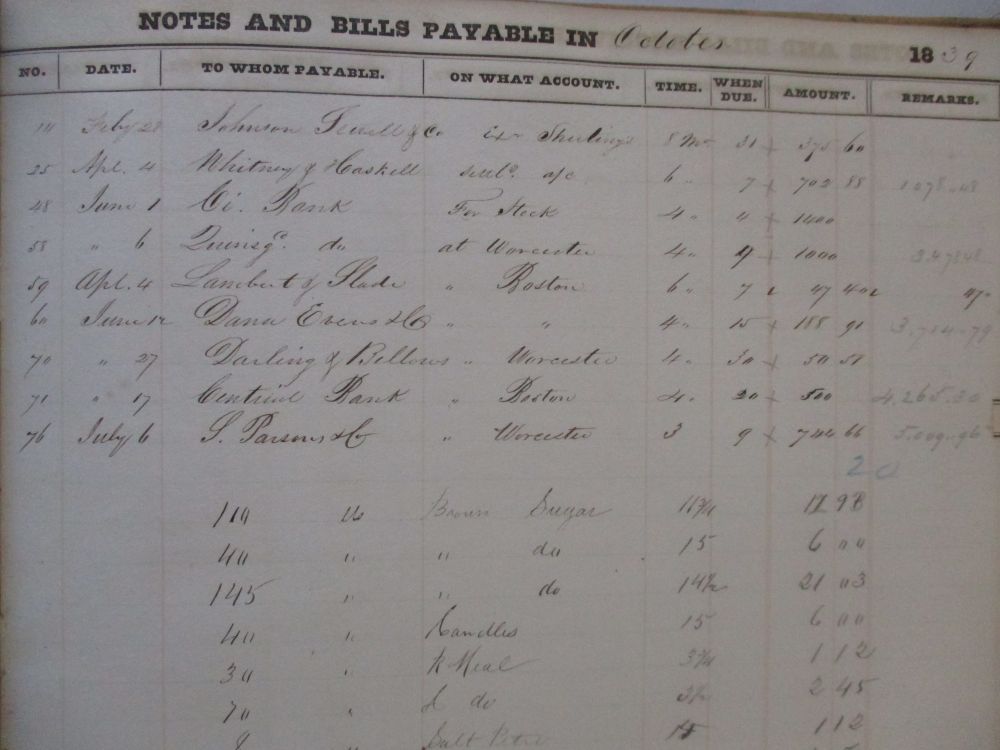 NOTES AND BILLS PAYABLE IN October 1839
NO. DATE. TO WHOM PAYABLE. ON WHAT ACCOUNT. TIME. WHEN DUE. AMOUNT. REMARKS.
Feby 28 Johnson & Co 8 Mos 31 375 60
25 Apl. 4 Whitney & Haskell a/c 6 " 7 702 88 1078.48
48 June 1 Ci. Bank For Stock 4 " 4 1400
58 " 6 do at Worcester 4 " 9 1000 3.478.48
59 Apl. 4 Lambert & Slade " Boston 6 " 7 47 40 47
60 June 12 Dana Evens & Co " " 4 " 15 188 91 3.714.79
70 " 27 Darling & Bellows " Worcester 4 " 30 50 51
71 " 17 Bank " Boston 4 " 20 500 4.265.30
76 July 6 S. Parsons & Co " Worcester 3 9 744 66 5.009.96
20
lbs Brown Sugar 17 98
40 " " do 15 6 00
145 " " do 14½ 21 03
40 " Candles 15 6 00
30 " R Meal 3¾ 1 12
70 " I do 3½ 2 45
9 " Salt Petre 1 12